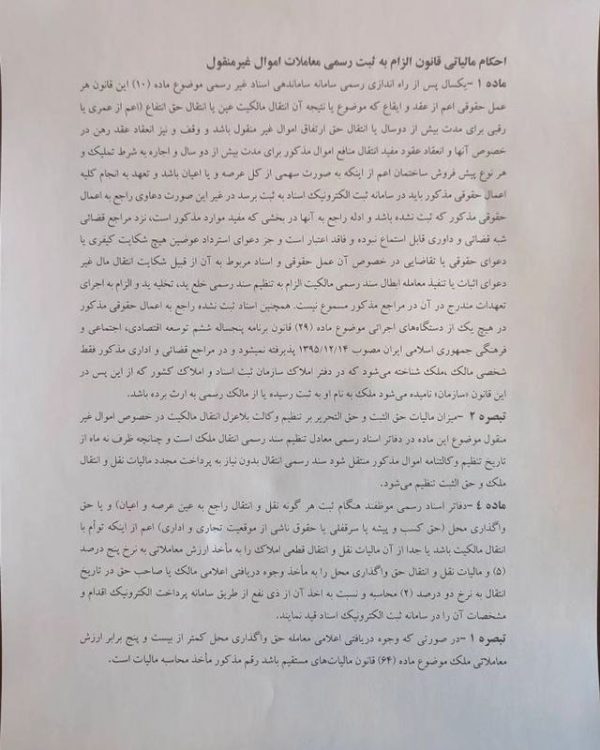 احکام مالیاتی قانون الزام به ثبت رسمی معاملات اموال غیرمنقول
ماده ۱ –یکسال پس از راه اندازی رسمی سامانه ساماندهی اسناد غیر رسمی موضوع ماده (۱۰) این قانون هر
عمل حقوقی اعم از عقد و ایقاع که موضوع یا نتیجه آن انتقال مالکیت عین یا انتقال حق انتفاع (اعم از عمری یا
رقبی برای مدت بیش از دوسال یا انتقال حق ارتفاق اموال غیر منقول باشد و وقف و نیز انعقاد عقد رهن در
خصوص آنها و انعقاد عقود مفید انتقال منافع اموال مذکور برای مدت بیش از دو سال و اجاره به شرط تملیک و
هر نوع پیش فروش ساختمان اعم از اینکه به صورت سهمی از کل عرصه و یا اعیان باشد و تعهد به انجام کلیه
اعمال حقوقی مذکور باید در سامانه ثبت الکترونیک اسناد به ثبت برسد در غیر این صورت دعاوی راجع به اعمال
حقوقی مذکور که ثبت نشده باشد و ادله راجع به آنها در بخشی که مفید موارد مذکور است، نزد مراجع قضائی
شبه قضائی و داوری قابل استماع نبوده و فاقد اعتبار است و جز دعوای استرداد عوضین هیچ شکایت کیفری یا
دعوای حقوقی یا تقاضایی در خصوص آن عمل حقوقی و اسناد مربوط به آن از قبیل شکایت انتقال مال غیر
دعوای اثبات یا تنفیذ معامله ابطال سند رسمی مالکیت الزام به تنظیم سند رسمی خلع ید، تخلیه ید و الزام به اجرای
تعهدات مندرج در آن در مراجع مذکور مسموع نیست. همچنین اسناد ثبت نشده راجع به اعمال حقوقی مذکور
در هیچ یک از دستگاه‌های اجرائی موضوع ماده (۲۹) قانون برنامه پنجساله ششم توسعه اقتصادی، اجتماعی و
فرهنگی جمهوری اسلامی ایران مصوب ۱۳۹۵/۱۲/۱۴ پذیرفته نمیشود و در مراجع قضائی و اداری مذکور فقط
شخصی مالک ،ملک شناخته می‌شود که در دفتر املاک سازمان ثبت اسناد و املاک کشور که از این پس در
این قانون «سازمان» نامیده می‌شود ملک به نام او به ثبت رسیده یا از مالک رسمی به ارث برده باشد.
تبصره ۲ –میزان مالیات حق الثبت و حق التحریر بر تنظیم وکالت بلاعزل انتقال مالکیت در خصوص اموال غیر
منقول موضوع این ماده در دفاتر اسناد رسمی معادل تنظیم سند رسمی انتقال ملک است و چنانچه ظرف نه ماه از
تاریخ تنظیم وکالتنامه اموال مذکور منتقل شود سند رسمی انتقال بدون نیاز به پرداخت مجدد مالیات نقل و انتقال
ملک و حق الثبت تنظیم می‌شود.
ماده ۴ –دفاتر اسناد رسمی موظفند هنگام ثبت هر گونه نقل و انتقال راجع به عین عرصه و اعیان) و یا حق
واگذاری محل (حق کسب و پیشه یا سرقفلی یا حقوق ناشی از موقعیت تجاری و اداری) اعم از اینکه توأم با
انتقال مالکیت باشد یا جدا از آن مالیات نقل و انتقال قطعی املاک را به مأخذ ارزش معاملاتی به نرخ پنج درصد
(۵) و مالیات نقل و انتقال حق واگذاری محل را به مأخذ وجوه دریافتی اعلامی مالک یا صاحب حق در تاریخ
انتقال به نرخ دو درصد (۲) محاسبه و نسبت به اخذ آن از ذی نفع از طریق سامانه پرداخت الکترونیک اقدام و
مشخصات آن را در سامانه ثبت الکترونیک اسناد قید نمایند.
تبصره ۱ –در صورتی که وجوه دریافتی اعلامی معامله حق واگذاری محل کمتر از بیست و پنج برابر ارزش
معاملاتی ملک موضوع ماده (۶۴) قانون مالیات‌های مستقیم باشد رقم مذکور مأخذ محاسبه مالیات است.